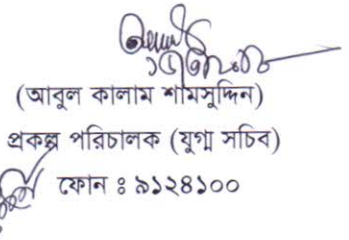 (আবুল কালাম শামসুদ্দিন)
প্রকল্প পরিচালক (যুগ্ম সচিব)
ফোন ঃ ৯১২৪১০০